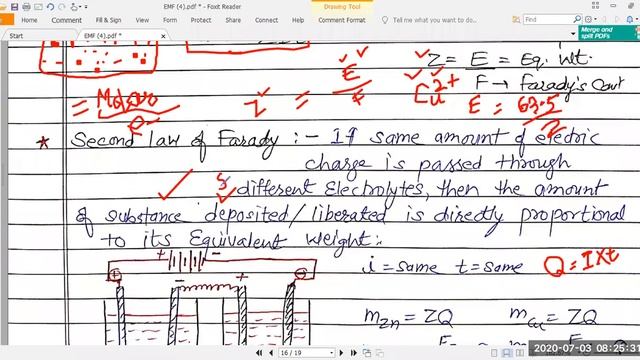 EMF (4).pdf * - Foxit Reader
Drawing Tool
File Home Comment View Form Protect Share Help Extras Comment Format Tell me what you want to do... Find
Start EMF (4).pdf *
Merge and split PDFs
Z = E = Eq. Wt.
F → Farady's Cont
Z = E
F
Cu2+ E = 63.5
2
= Molar
* Second law of Farady :- If same amount of electric
charge is passed through
3 different Electrolytes, then the amount
of substance deposited/liberated is directly proportional
to its Equivalent Weight:-
+ -
i = same t = same Q = I×t
+ - + -
mZn = ZQ mCu = ZQ
16 / 19
2020-07-03 08:25:31